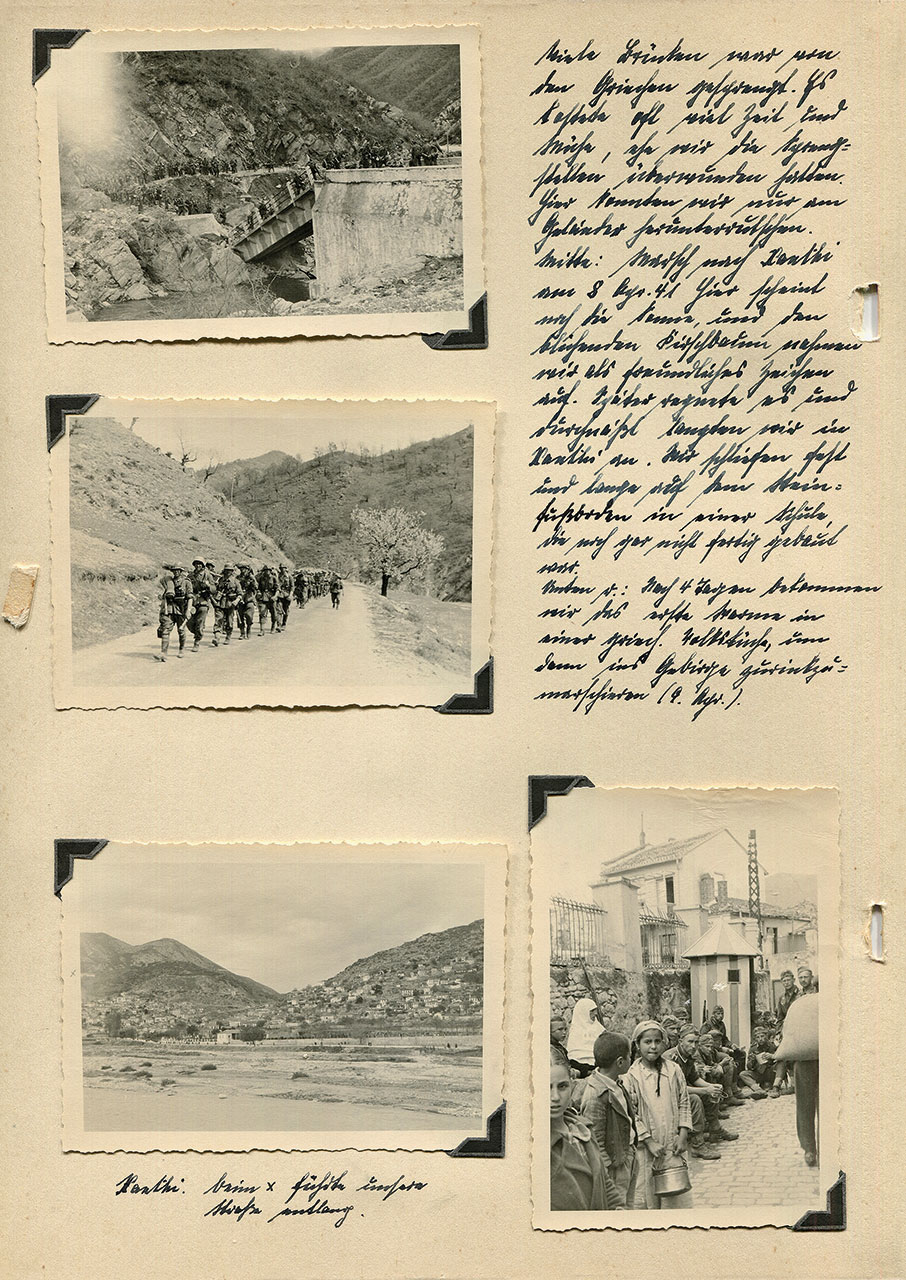 Viele Brücken war von
den Griechen gesprengt. Es
kostete oft viel Zeit und
Mühe, ehe wir die Spreng=
stellen überwunden hatten.
Hier konnten wir nur am
Geländer herunterrutschen.
Mitte: Marsch nach Xanthi
am 8 Apr. 41 Hier scheint
noch die Sonne, und den
blühenden Kirschbaum nahmen
wir als freundliches Zeichen
auf. Später regnete es und
durchnäßt langten wir in
Xanthi an. Wir schliefen fest
und lange auf dem Stein=
fußboden in einer Schule,
die noch gar nicht fertig gebaut
war.
Unten r.: Nach 4 Tagen bekommen
wir das erste Warme in
einer griech. Volksküche, um
dann ins Gebirge zurückzu=
marschieren (9. Apr.).
Xanthi. Beim x führte unsere
Straße entlang.
x